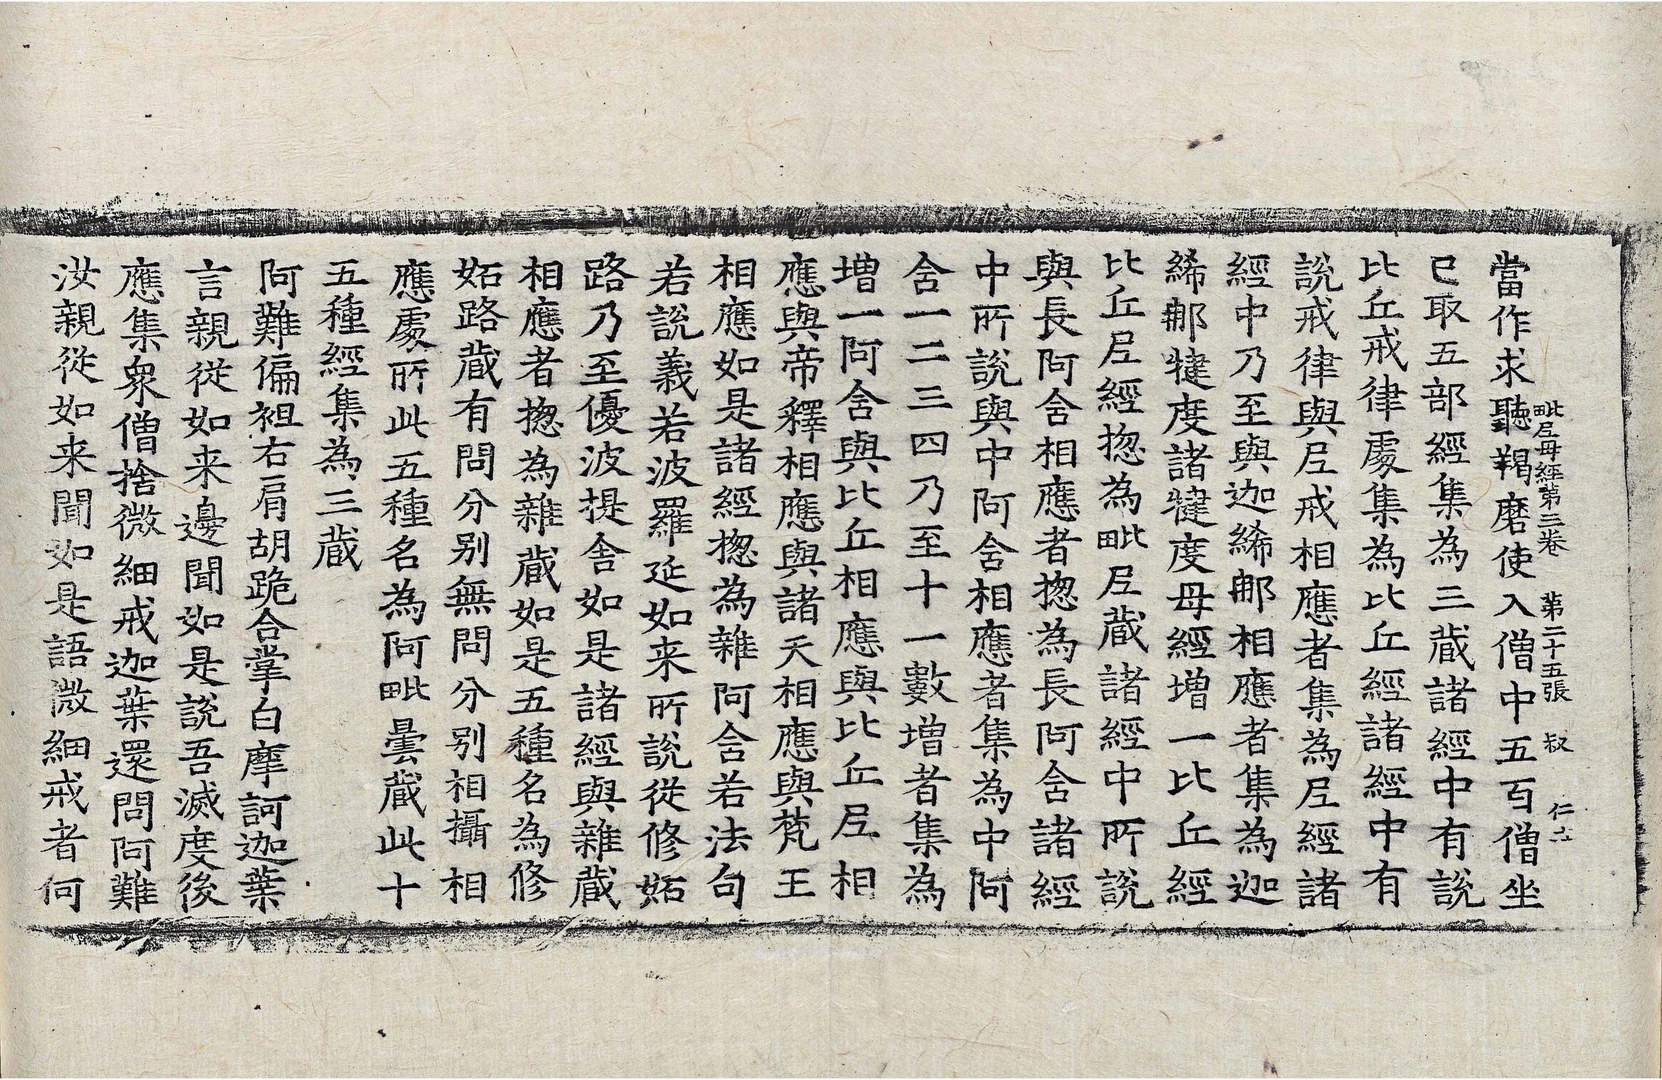 當作求聽羯磨使入僧中五百僧坐
毗尼母經第三卷 第二十五張 叔 仁
已取五部經集為三蔵諸經中有說
比丘戒律處集為比丘經諸經中有
說戒律與尼戒相應者集為尼經諸
經中乃至與迦絺郍相應者集為迦
絺郍揵度諸揵度母經增一比丘經
比丘尼經揔為毗尼蔵諸經中所說
與長阿含相應者揔為長阿含諸經
中所說與中阿含相應者集為中阿
含一二三四乃至十一數增者集為
增一阿含與比丘相應與比丘尼相
應與帝釋相應與諸天相應與梵王
相應如是諸經揔為雜阿含若法句
若說義若波羅延如来所說從修妬
路乃至優波提舍如是諸經與雜蔵
相應者揔為雜蔵如是五種名為修
妬路蔵有問分别無問分别相攝相
應處所此五種名為阿毗曇蔵此十
五種經集為三蔵
阿難偏袒右肩胡跪合掌白摩訶迦葉
言親從如来邊聞如是說吾滅度後
應集衆僧捨微細戒迦葉還問阿難
汝親從如来聞如是語微細戒者何